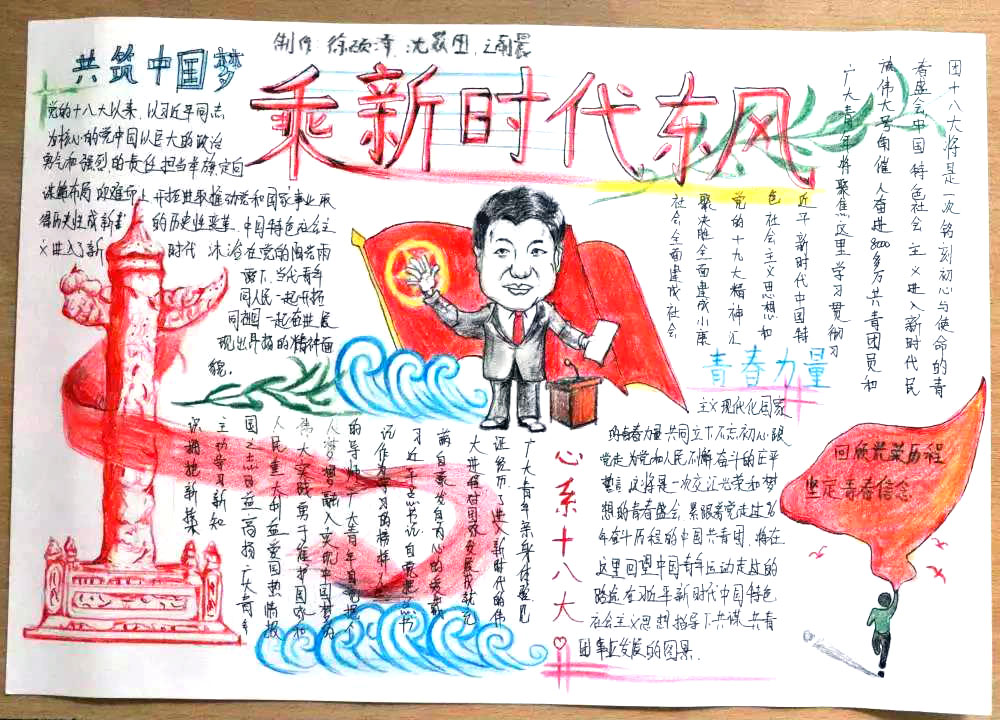 制作:
共筑中国梦
乘新时代东风
党的十八大以来,以习近平同志
为核心的党中国以巨大的政治
勇气和强烈的责任担当举旗定向
谋篇布局 迎难而上 开拓进取推动党和国家事业取
得历史性成 的历史性变革、中国特色社会主
义进入新 时代 沐浴在党的阳光雨
露下,当代青年
同人民一起开拓
同祖国一起奋进展
现出昂扬的精神面
貌.
团十八大将是一次铭刻初心与使命的青
春盛会中国特色社会主义进入新时代民
族伟大号角催人奋进8000多万共青团员和
广大青年将聚焦这里学习贯彻习
近平新时代中国特
色社会主义思想和
党的十九大精神汇
聚决胜全面建成小康
社会全面建成社会
青春力量
主义现代化国家
的青春力量共同立下不忘初心跟
党走为党和人民不懈奋斗的庄严
誓言,这将是一次交汇光荣和梦
想的青春盛会,紧跟着党走过96
年奋斗历程的中国共青团,将在
这里回望中国青年运动走过的
路途在习近平新时代中国特色
社会主义思想指导下共谋共青
团事业发展的图景.
心系十八大
广大青年亲身体验见
证经历了进入新时代的伟
大进程对国家发展成就充
满自豪发自内心的爱戴
习近平总书记自觉把总书
记作为学习的榜样
的导师广大青年自觉把个
人梦想融入实现中国梦的
伟大实践勇于维护国家和
人民重大利益爱国热情报
国之志日益高扬广大青年
主动学习新知
识拥抱新技术
回顾光荣历程
坚定青春信念